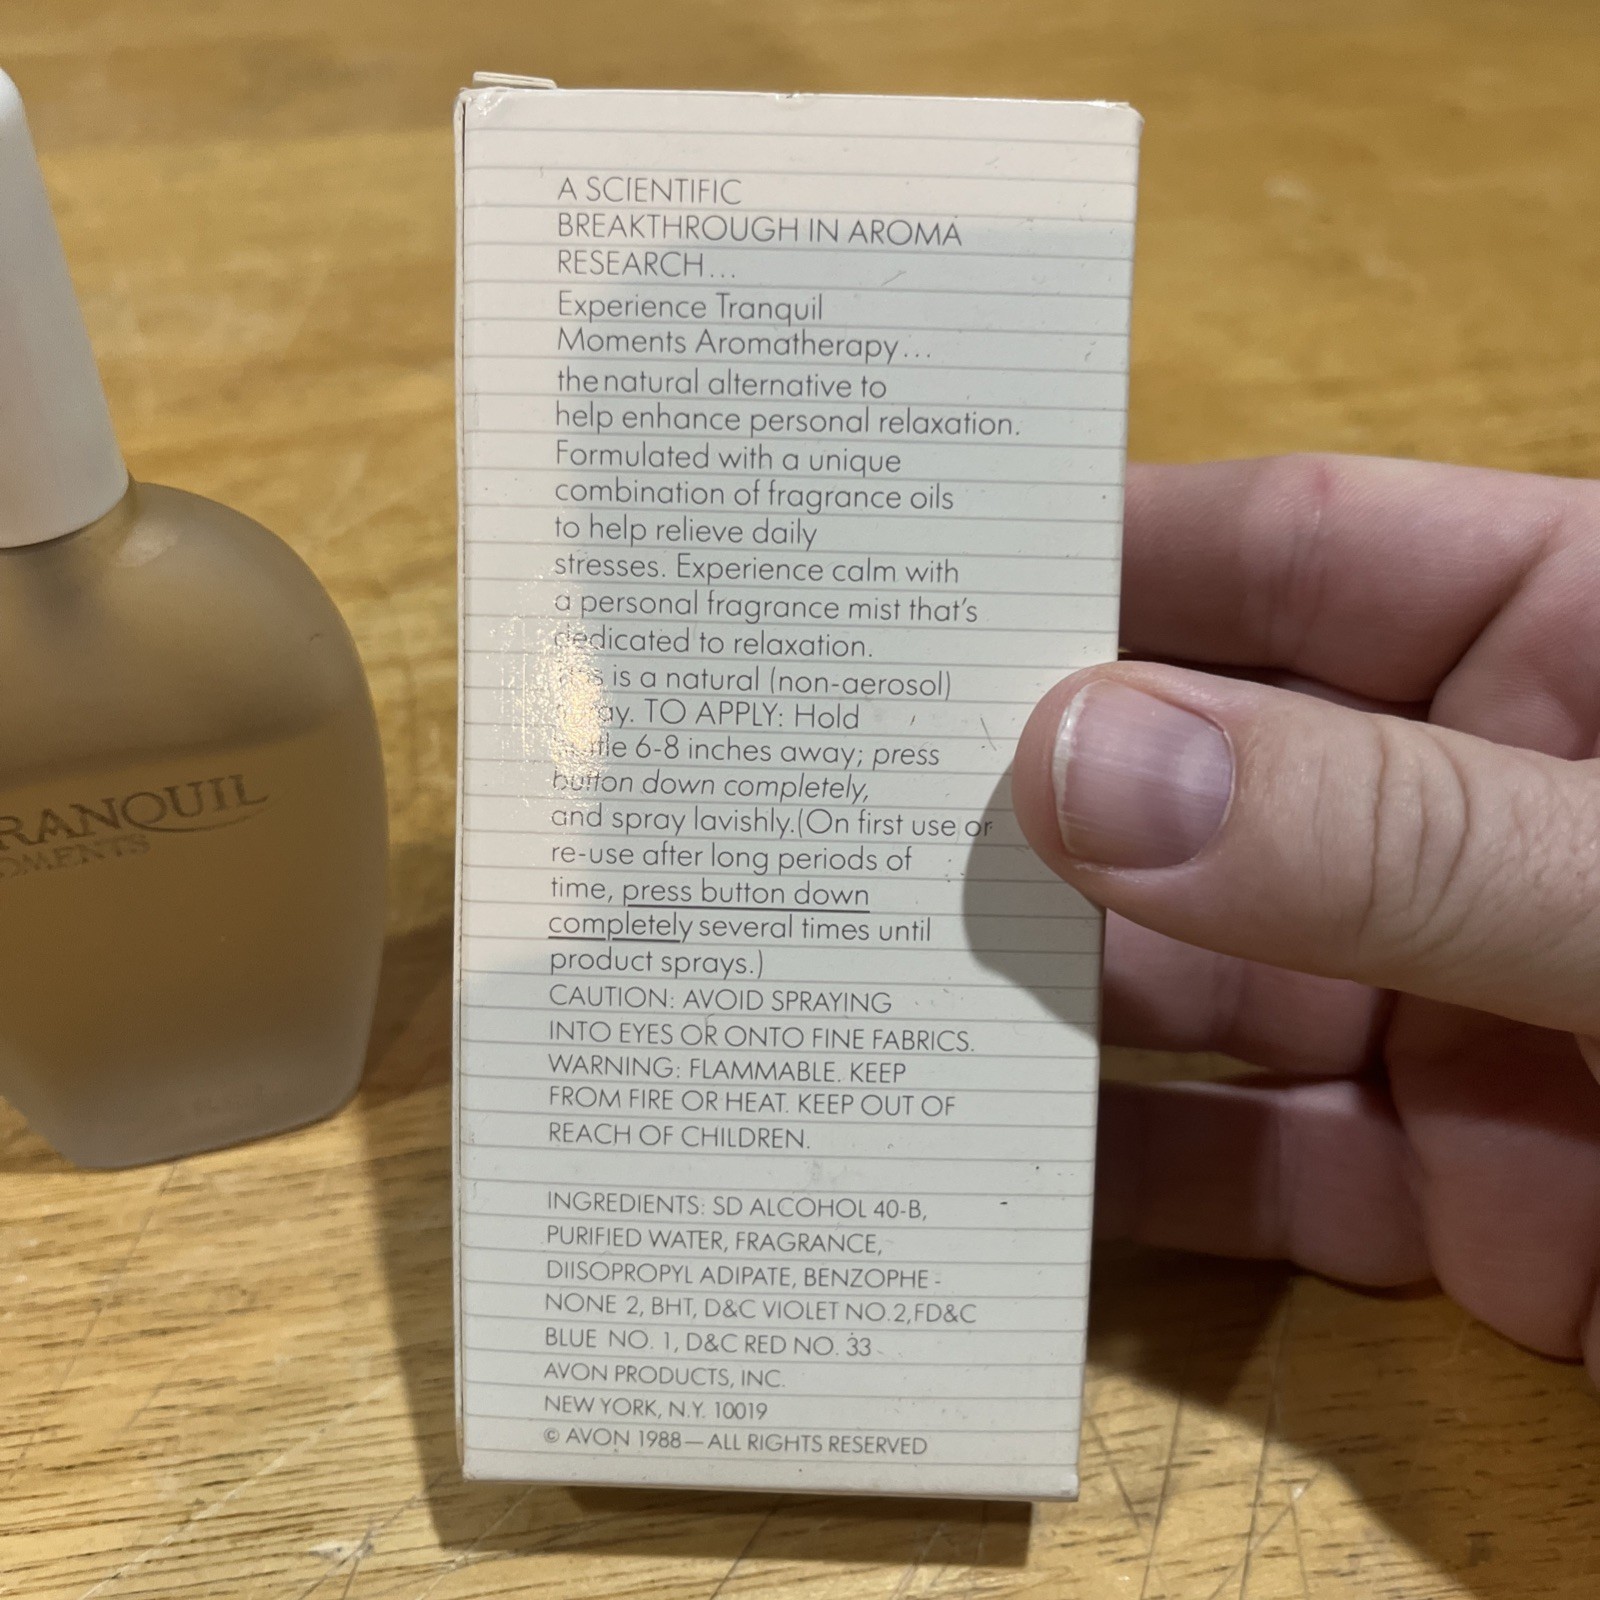 A SCIENTIFIC
BREAKTHROUGH IN AROMA
RESEARCH...
Experience Tranquil
Moments Aromatherapy...
the natural alternative to
help enhance personal relaxation.
Formulated with a unique
combination of fragrance oils
to help relieve daily
stresses. Experience calm with
a personal fragrance mist that's
dedicated to relaxation.
is a natural (non-aerosol)
TO APPLY: Hold
6-8 inches away; press
button down completely,
and spray lavishly.(On first use or
re-use after long periods of
time, press button down
completely several times until
product sprays.)
CAUTION: AVOID SPRAYING
INTO EYES OR ONTO FINE FABRICS.
WARNING: FLAMMABLE. KEEP
FROM FIRE OR HEAT. KEEP OUT OF
REACH OF CHILDREN.
INGREDIENTS: SD ALCOHOL 40-B,
PURIFIED WATER, FRAGRANCE,
DIISOPROPYL ADIPATE, BENZOPHE-
NONE 2, BHT, D&C VIOLET NO.2,FD&C
BLUE NO. 1, D&C RED NO. 33
AVON PRODUCTS, INC.
NEW YORK, N.Y. 10019
© AVON 1988—ALL RIGHTS RESERVED
RANQUIL
OMENTS